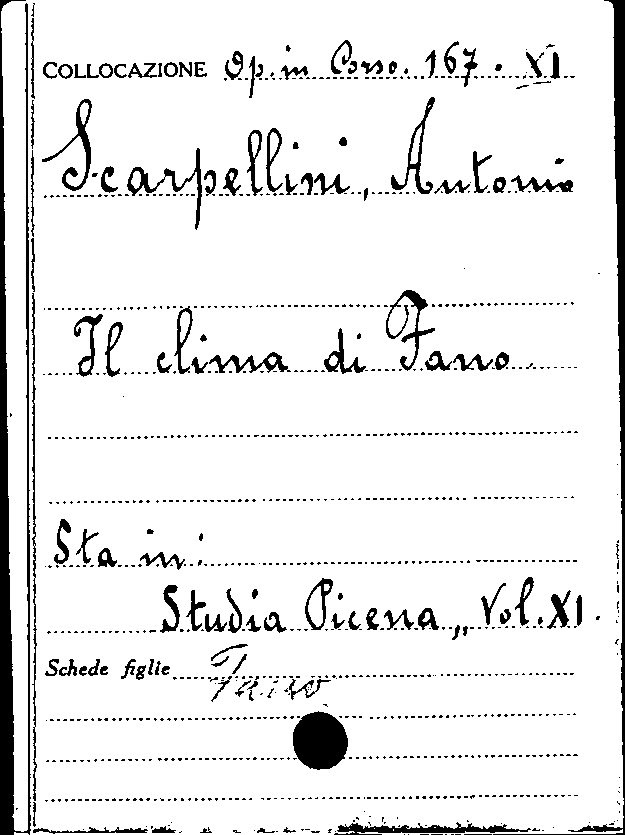 COLLOCAZIONE Op. in Corso. 167. XI
Scarpellini, Antonio
Il clima di Fano.
Sta in:
Studia Picena „ Vol. XI.
Schede figlie Fano